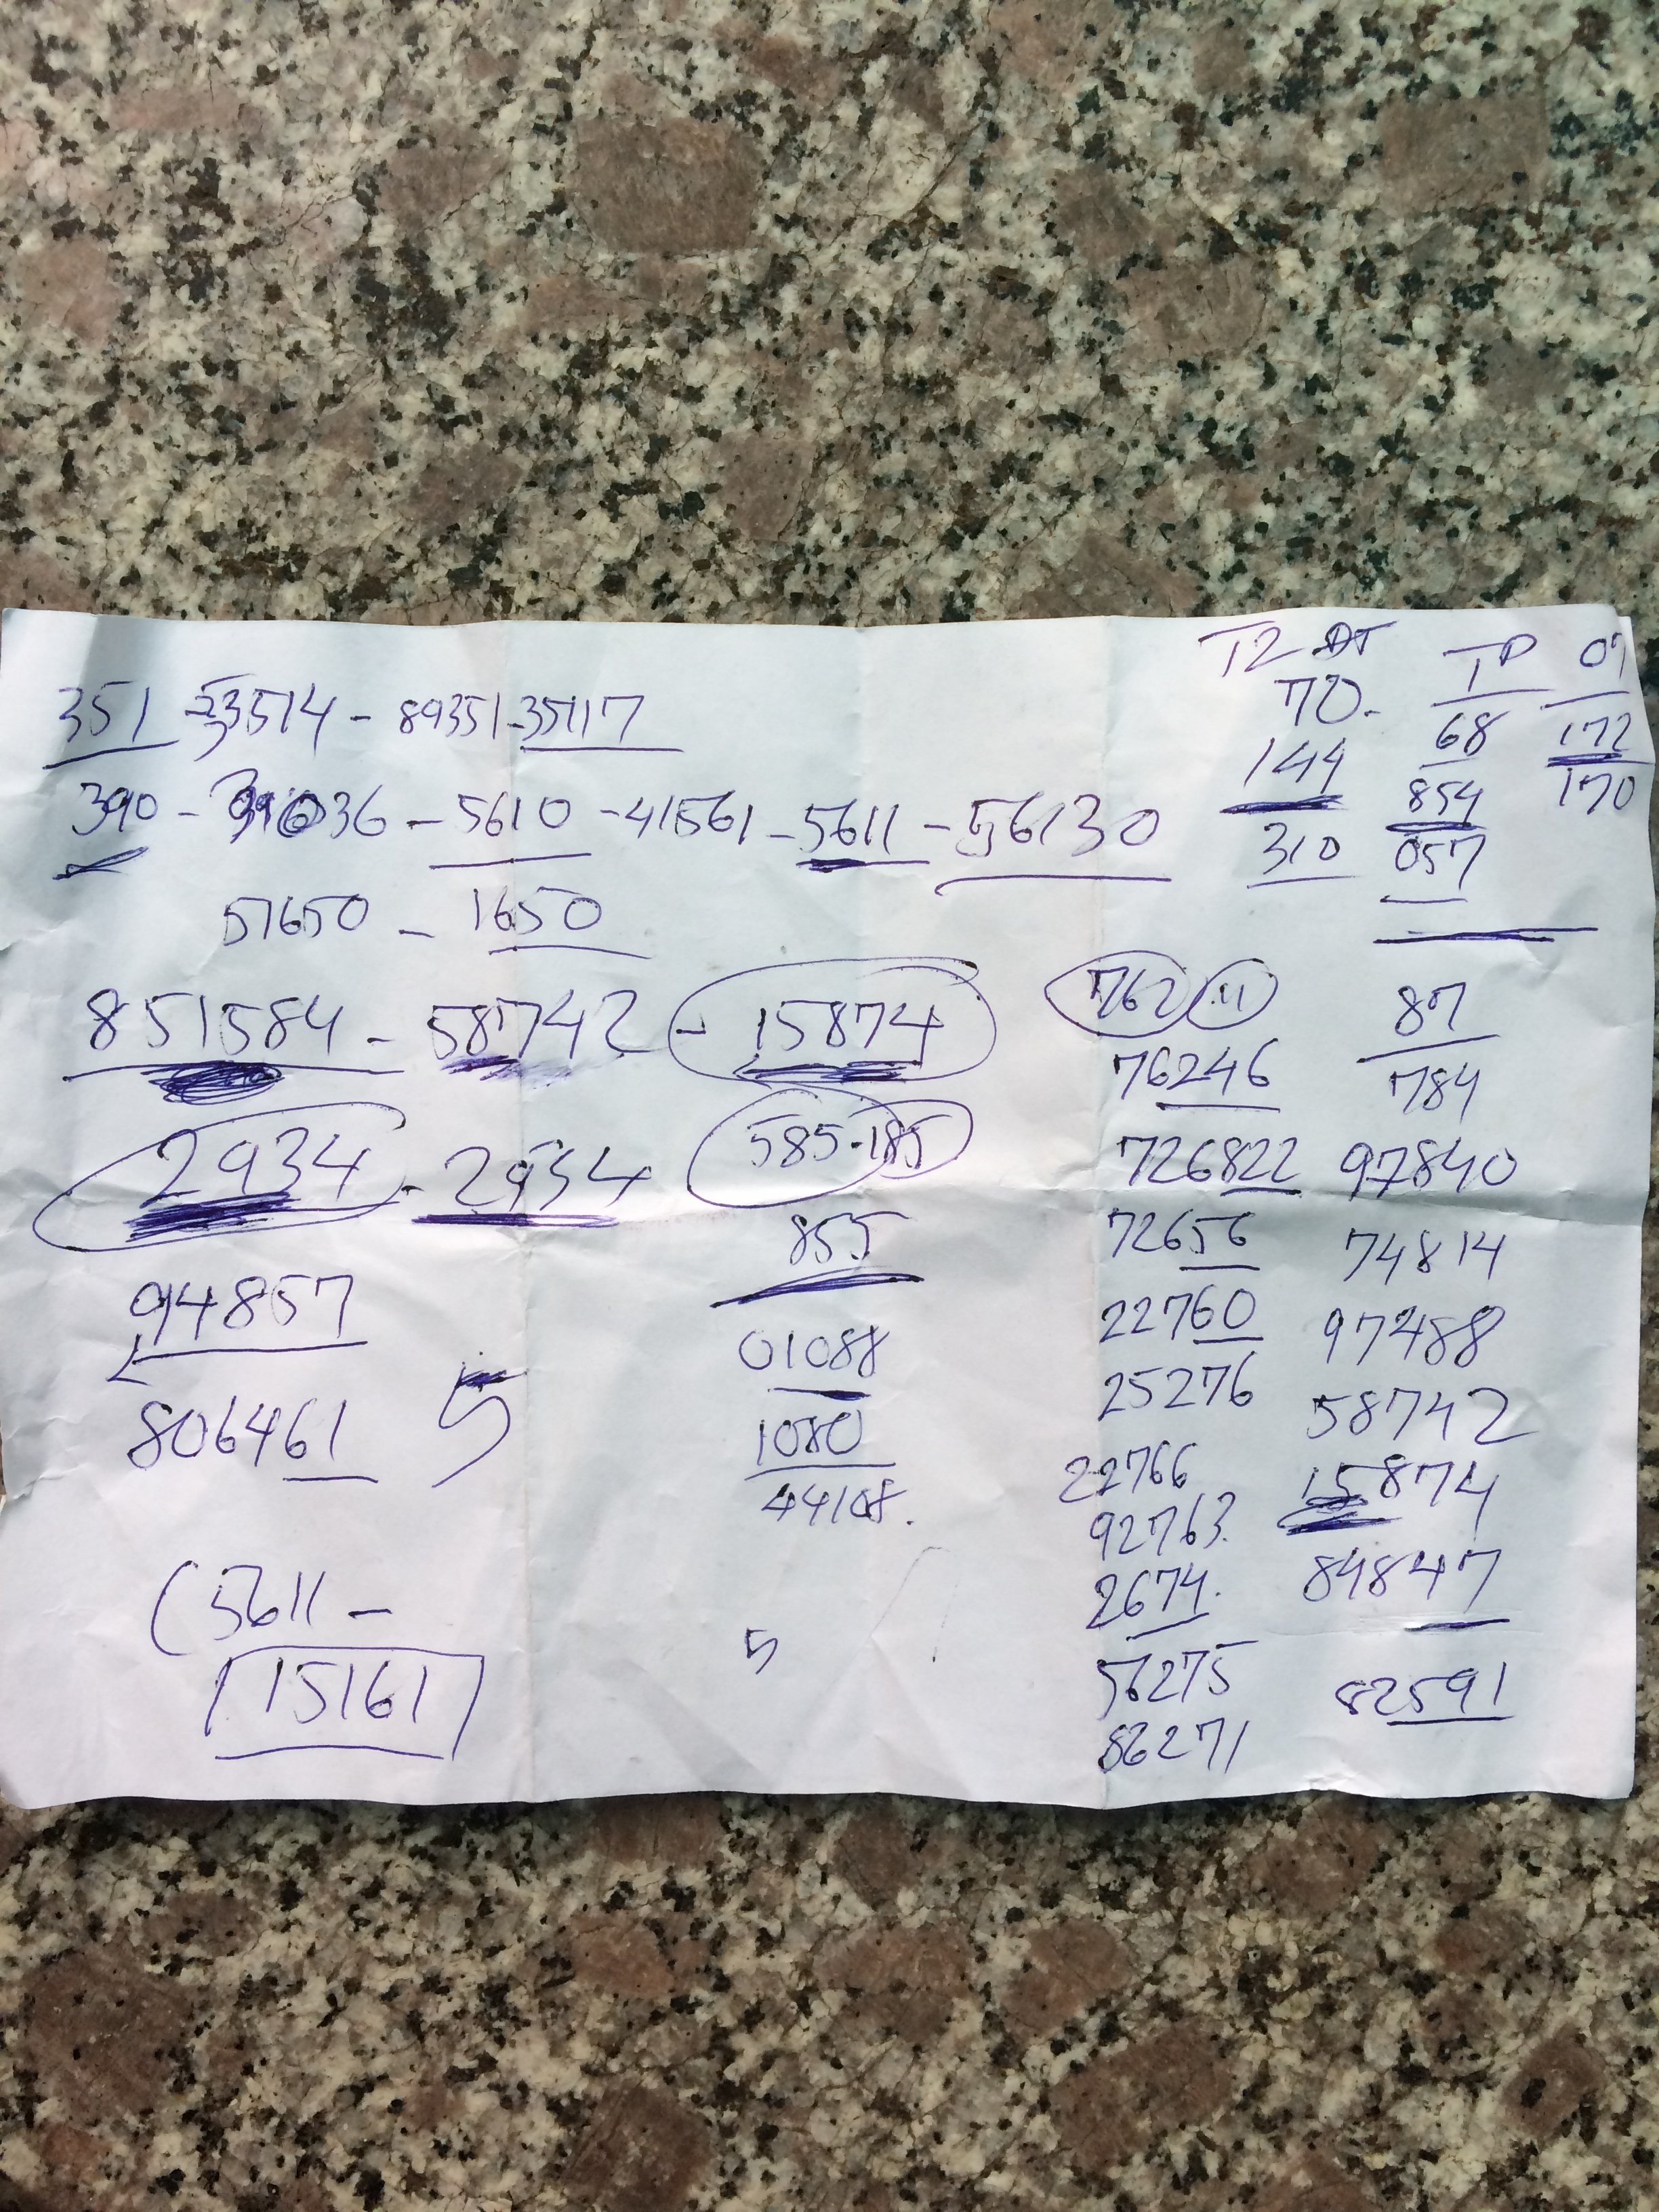 T2 ĐT TP
351 - 53514 - 89351 - 35117
70. 68 172
390 - 036 - 5610 - 41561 - 5611 - 56130
144 854 170
310 057
51650 - 1650
851584 - 58742 - 15874
762 11 87
76246 784
2934 - 2934 585 - 185
726822 97840
855 72656 74814
94857 01088 22760 97488
806461 5 1080 25276 58742
44108. 22766 15874
92763.
(5611 - 2674. 84847
15161 5 56275 82591
86271